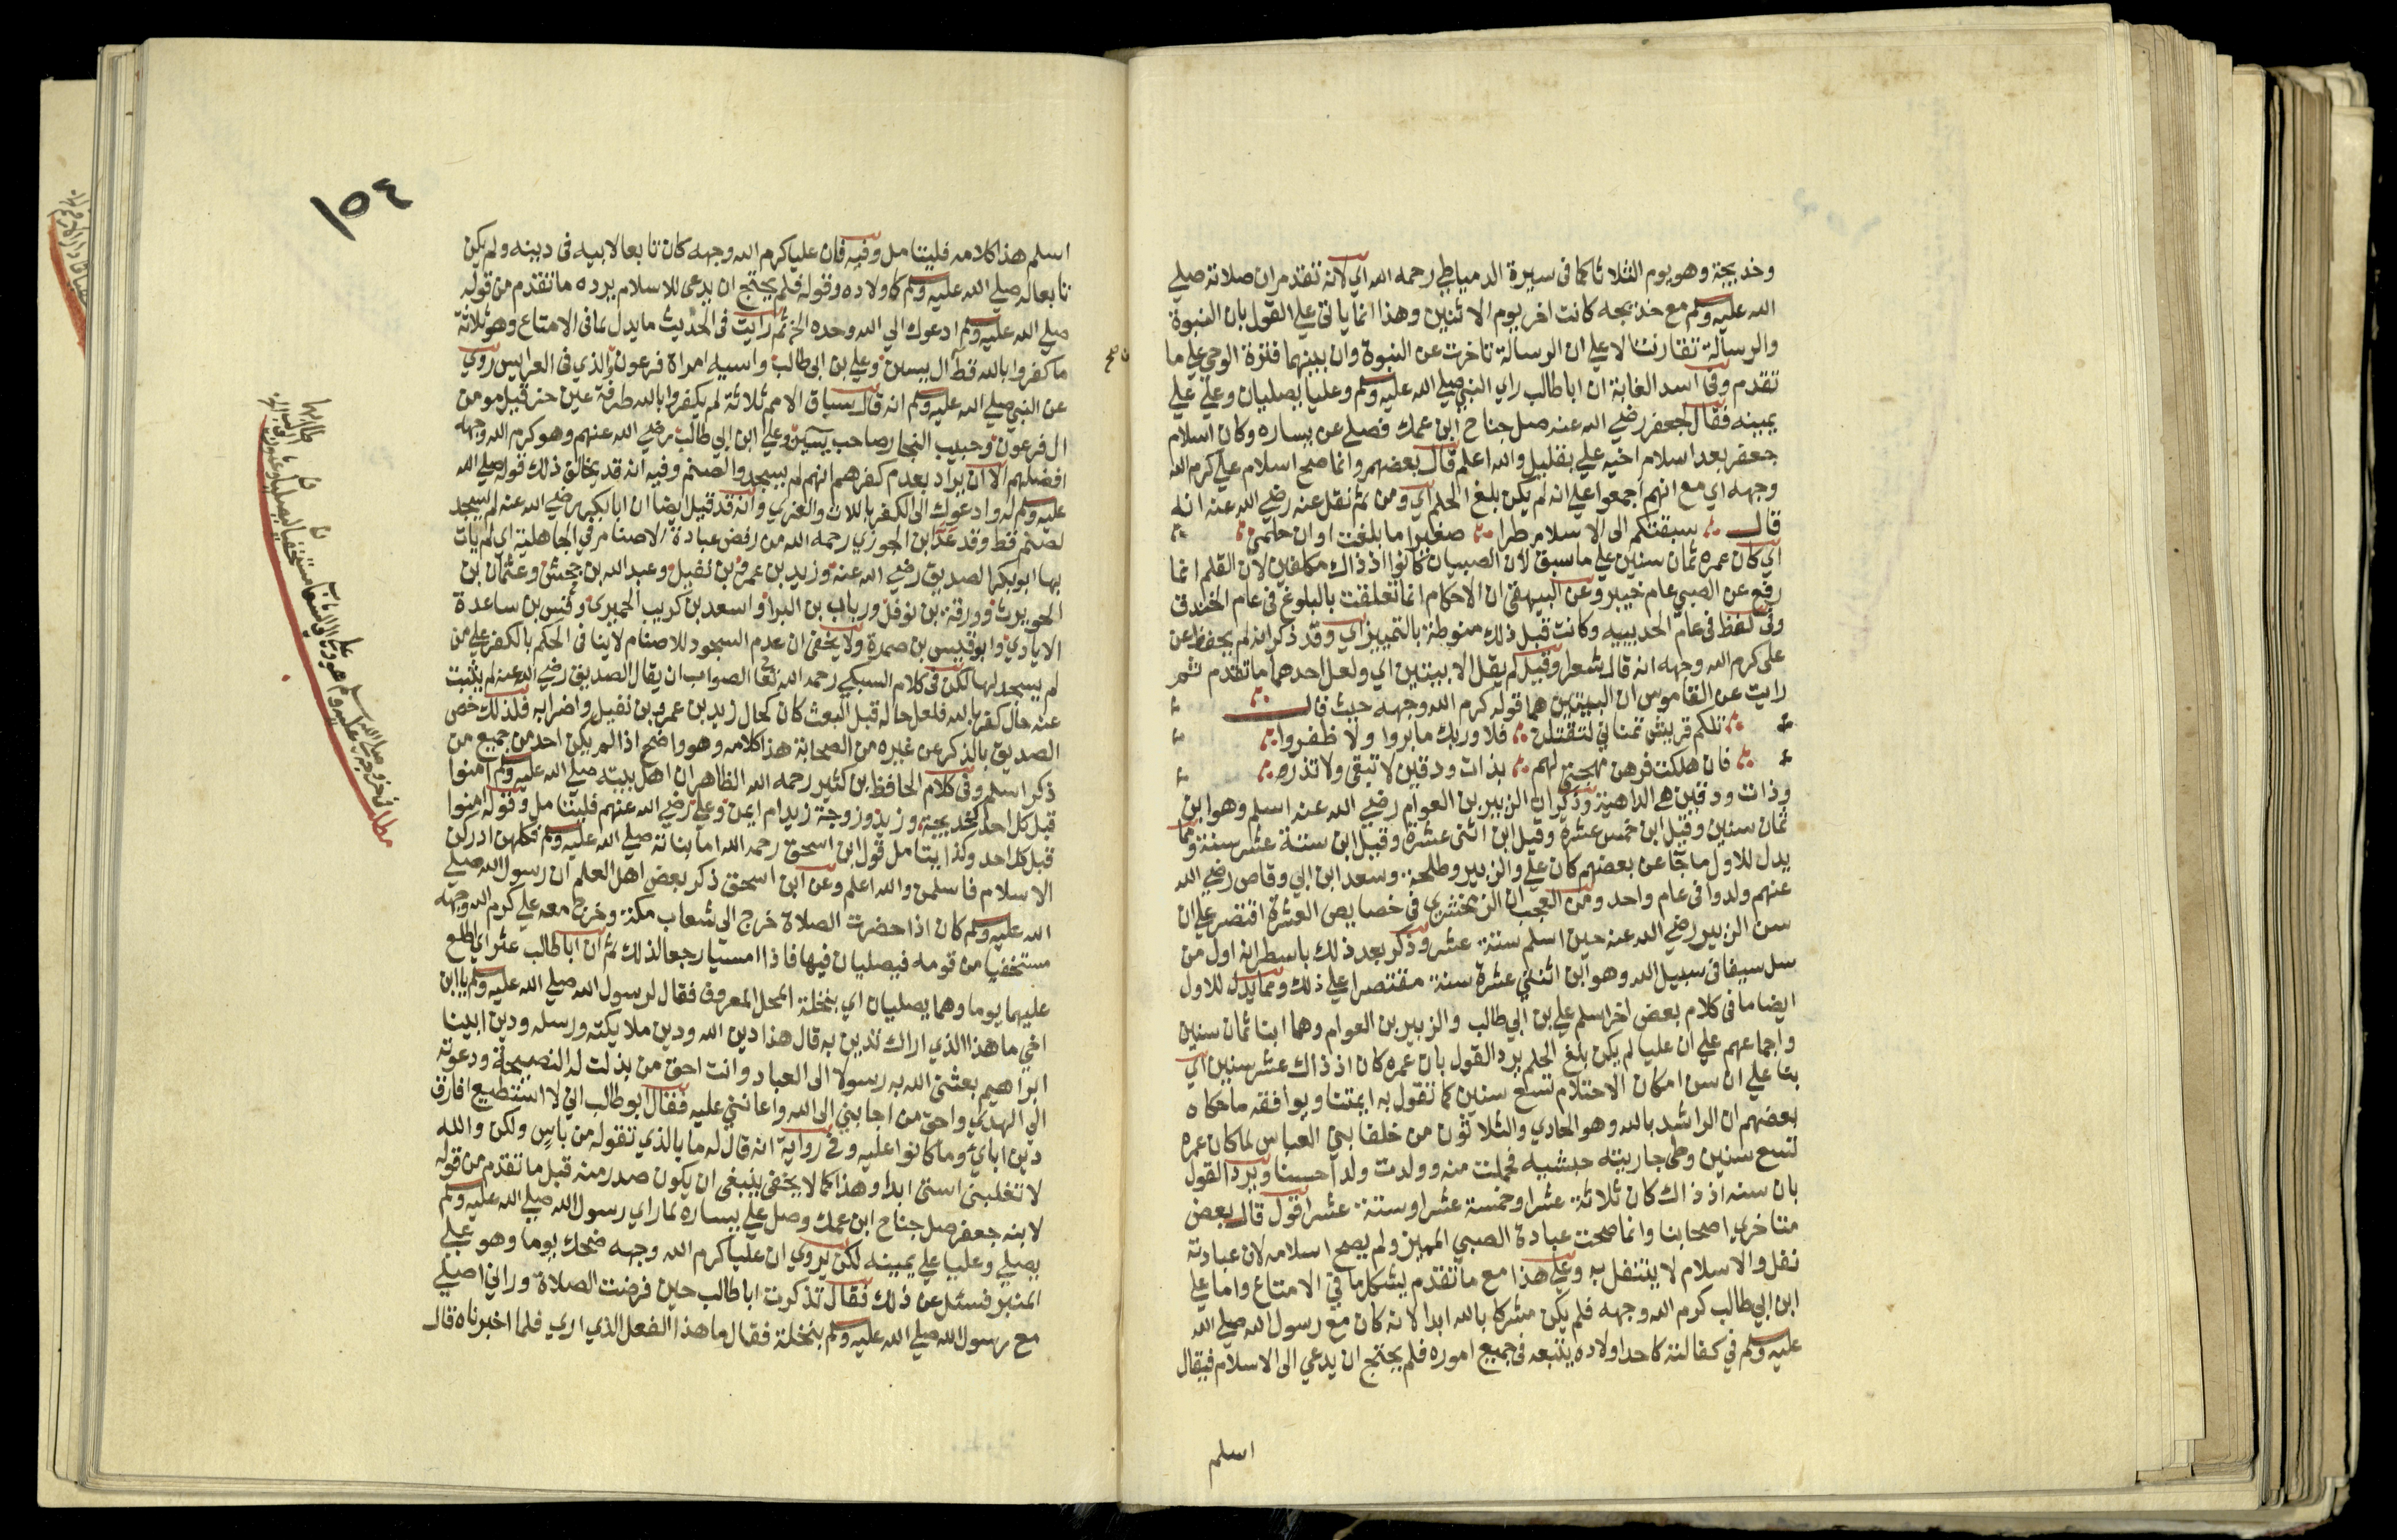 وخديجة وهو يوم الثلاثا كما في سيرة الدمياطي رحمه الله اي لانه تقدم ان صلاته صلي
الله عليه وسلم مع خديجه كانت اخر يوم الاثنين وهذا انما ياتي علي القول بان النبوة
والرسالة تقارنتا لا علي ان الرسالة تاخرت عن النبوة وان بينهما فترة الوحي علي ما
تقدم وفي اسد الغابة ان ابا طالب راي النبي صلي الله عليه وسلم وعليا يصليان وعلي علي
يمينه فقال لجعفر رضي الله عنه صل جناح ابن عمك فصلي عن يساره وكان اسلام
جعفر بعد اسلام اخيه علي بقليل والله اعلم قال بعضهم وانما صح اسلام علي كرم الله
وجهه اي مع انهم اجمعوا علي انه لم يكن بلغ الحلم اي ومن ثم نقل عنه رضي الله عنه انه
قال سبقتكم الى الاسلام طرا صغيرا ما بلغت اوان حلمي
اي كان عمره ثمان سنين علي ما سبق لان الصبيان كانوا اذ ذاك مكلفين لان القلم انما
رفع عن الصبي عام خيبر وعن البيهقي ان الاحكام انما تعلقت بالبلوغ في عام الخندق
وفي لفظ في عام الحديبيه وكانت قبل ذلك منوطة بالتمييز اي وقد ذكر انه لم يحفظ عن
علي كرم الله وجهه انه قال شعرا وقيل لم يقل الا بيتين اي ولعل احدهما ما تقدم ثم
رايت عن القاموس ان البيتين هما قوله كرم الله وجهه حيث قال
تلكم قريش تمناني لتقتلني فلا وربك ما بروا ولا ظفروا
فان هلكت فرهن مهجتي لهم بذات ودقين لا تبقي ولا تذر
وذات ودقين هي الداهية وذكر ان الزبير بن العوام رضي الله عنه اسلم وهو ابن
ثمان سنين وقيل ابن خمس عشرة وقيل ابن اثني عشرة وقيل ابن ستة عشر سنة ومما
يدل للاول ما جآ عن بعضهم كان علي والزبير وطلحة وسعد ابن ابي وقاص رضي الله
عنهم ولدوا في عام واحد ومن العجب ان الزمخشري في خصايص العشرة اقتصر علي ان
سن الزبير رضي الله عنه حين اسلم ستة عشر وذكر بعد ذلك باسطر انه اول من
سل سيفا في سبيل الله وهو ابن اثنتي عشرة سنة مقتصرا علي ذلك ومما يدل للاول
ايضا ما في كلام بعض اخر اسلم علي بن ابي طالب والزبير بن العوام وهما ابنا ثمان سنين
واجماعهم علي ان عليا لم يكن بلغ الحلم يرد القول بان عمره كان اذ ذاك عشر سنين اي
بنا علي ان سن امكان الاحتلام تسع سنين كما تقول به ايمتنا ويوافقه ما حكاه
بعضهم ان الراشد بالله وهو الحادي والثلاثون من خلفا بني العباس لما كان عمره
تسع سنين وطي جاريته حبشيه فحملت منه وولدت ولدا حسنا ويرد القول
بان سنه اذ ذاك كان ثلاثة عشر او خمسة عشر او ستة عشر اقول قال بعض
متاخري اصحابنا وانما صحت عبادة الصبي المميز ولم يصح اسلامه لان عبادته
نفل والاسلام لا يتنفل به وعلي هذا مع ما تقدم يشكل ما في الامتاع واما علي
ابن ابي طالب كرم الله وجهه فلم يكن مشركا بالله ابدا لانه كان مع رسول الله صلي الله
عليه وسلم في كفالته كاحد اولاده يتبعه في جميع اموره فلم يحتج ان يدعي الى الاسلام فيقال
اسلم
١٥٤
اسلم هذا كلامه فليتامل وفيه فان عليا كرم الله وجهه كان تابعا لابيه في دينه ولم يكن
تابعا له صلي الله عليه وسلم كاولاده وقوله فلم يحتج ان يدعي للاسلام يرده ما تقدم من قوله
صلي الله عليه وسلم ادعوك الي الله وحده الخ ثم رايت في الحديث ما يدل لما في الامتاع وهو ثلاثة
ما كفروا بالله قط آل ييسين وعلي بن ابي طالب واسيه امراة فرعون والذي في العرايس روي
عن النبي صلي الله عليه وسلم انه قال سباق الامم ثلاثة لم يكفروا بالله طرفة عين حزقيل مومن
ال فرعون وحبيب النجار صاحب يسين وعلي ابن ابي طالب رضي الله عنهم وهو كرم الله وجهه
افضلهم الا ان يراد بعدم كفرهم انهم لم يسجدوا لصنم وفيه انه قد يخالف ذلك قوله صلي الله
عليه وسلم له وادعوك الى الكفر باللات والعزي وانه قد قيل ايضا ان ابا بكر رضي الله عنه لم يسجد
لصنم قط وقد عد ابن الجوزي رحمه الله من رفض عبادة الاصنام في الجاهلية اي لم يات
بها ابو بكر الصديق رضي الله عنه وزيد بن عمرو بن نفيل وعبد الله بن جحش وعثمان بن
الحويرث وورقة بن نوفل ورباب بن البرا واسعد بن كريب الحميري وقس بن ساعدة
الايادي وابو قيس بن صمرة ولا يخفى ان عدم السجود للاصنام لاينافي الحكم بالكفر علي من
لم يسجد لها لكن في كلام السبكي رحمه الله تعا الصواب ان يقال الصديق رضي الله عنه لم يثبت
عنه حال كفر بالله فلعل حاله قبل البعث كان كحال زيد بن عمرو بن نفيل واضرابه فلذلك خص
الصديق بالذكر عن غيره من الصحابة هذا كلامه وهو واضح اذا لم يكن احد من جميع من
ذكر اسلم وفي كلام الحافظ بن كثير رحمه الله الظاهر ان اهل بيته صلي الله عليه وسلم امنوا
قبل كل احد خديجة وزيد وزوجة زيد ام ايمن وعلي رضي الله عنهم فليتامل وقوله امنوا
قبل كل احد وكذا يتامل قول ابن اسحق رحمه الله اما بناته صلي الله عليه وسلم فكلهن ادركن
الاسلام فاسلمن والله اعلم وعن ابن اسحق ذكر بعض اهل العلم ان رسول الله صلي
الله عليه وسلم كان اذا حضرت الصلاة خرج الى شعاب مكة وخرج معه علي كرم الله وجهه
مستخفيا من قومه فيصليان فيها فاذا امسيا رجعا لذلك ثم ان ابا طالب عثر اي اطلع
عليهما يوما وهما يصليان اي بنخلة المحل المعروف فقال لرسول الله صلي الله عليه وسلم يا ابن
اخي ما هذا الذي اراك تدين به قال هذا دين الله ودين ملايكته ورسله ودين ابينا
ابراهيم بعثني الله به رسولا الى العباد وانت احق من بذلت له النصيحة ودعوته
الي الهدي واحق من اجابني الى الله واعانني عليه فقال ابو طالب اني لا استطيع افارق
دين اباي وما كانوا عليه وفي رواية انه قال له ما بالذي تقوله من باس ولكن والله
لا تغلبني استي ابدا وهذا كما لا يخفى ينبغي ان يكون صدر منه قبل ما تقدم من قوله
لابنه جعفر صل جناح ابن عمك وصل علي يساره لما راي رسول الله صلي الله عليه وسلم
يصلي وعليا علي يمينه لكن يروي ان عليا كرم الله وجهه ضحك يوما وهو علي
المنبر فسئل عن ذلك فقال تذكرت ابا طالب حين فرضت الصلاة وراني اصلي
مع رسول الله صلي الله عليه وسلم بنخلة فقال ما هذا الفعل الذي اري فلما اخبرناه قال